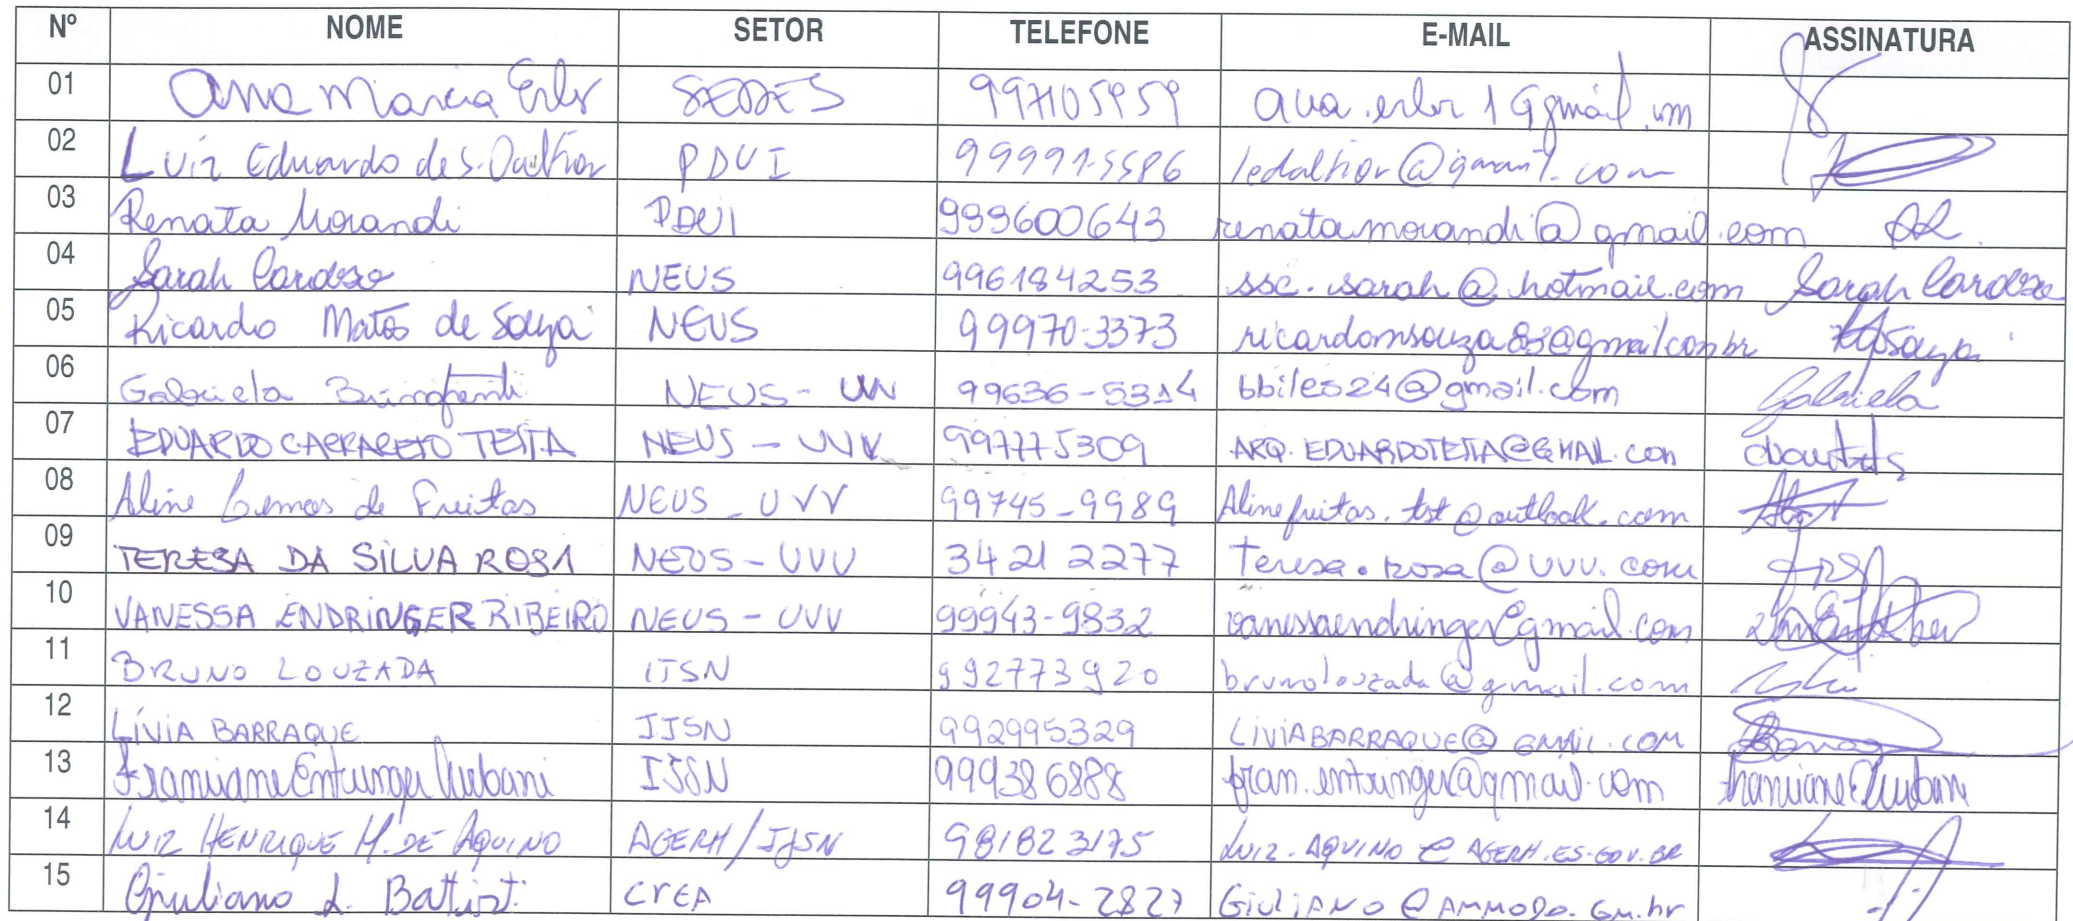 Nº NOME SETOR TELEFONE E-MAIL ASSINATURA
01 Ana Marcia Erler SEDES 997105959 ana.erler1@gmail.com
02 Luiz Eduardo de S. Dalfior PDUI 99991-5586 ledalfior@gmail.com
03 Renata Morandi PDUI 999600643 renatamorandi@gmail.com
04 Sarah Cardoso NEUS 996184253 ssc.sarah@hotmail.com Sarah Cardoso
05 Ricardo Matos de Souza NEUS 99970-3373 ricardomsouza83@gmail.com.br
06 Gabriela NEUS - UVV 99636-5314 bbiles24@gmail.com Gabriela
07 EDUARDO CARRARETO TESTA NEUS - UVV 997775309 ARQ.EDUARDOTESTA@GMAIL.COM
08 Aline Lemos de Freitas NEUS _ UVV 99745-9989 Alinefreitas.tst@outlook.com
09 TERESA DA SILVA ROSA NEUS - UVV 3421 2277 teresa.rosa@uvv.com
10 VANESSA ENDRINGER RIBEIRO NEUS - UVV 99943-9832 vanessaendringer@gmail.com
11 BRUNO LOUZADA IJSN 992773920 brunolouzada@gmail.com
12 LÍVIA BARRAQUE IJSN 992995329 LIVIABARRAQUE@GMAIL.COM
13 Framiane Entringer Urbani IJSN 999386888 fran.entringer@gmail.com
14 LUIZ HENRIQUE M. DE AQUINO AGERH/IJSN 981823175 LUIZ.AQUINO@AGERH.ES.GOV.BR
15 Giuliano L. Battisti CREA 99904-2827